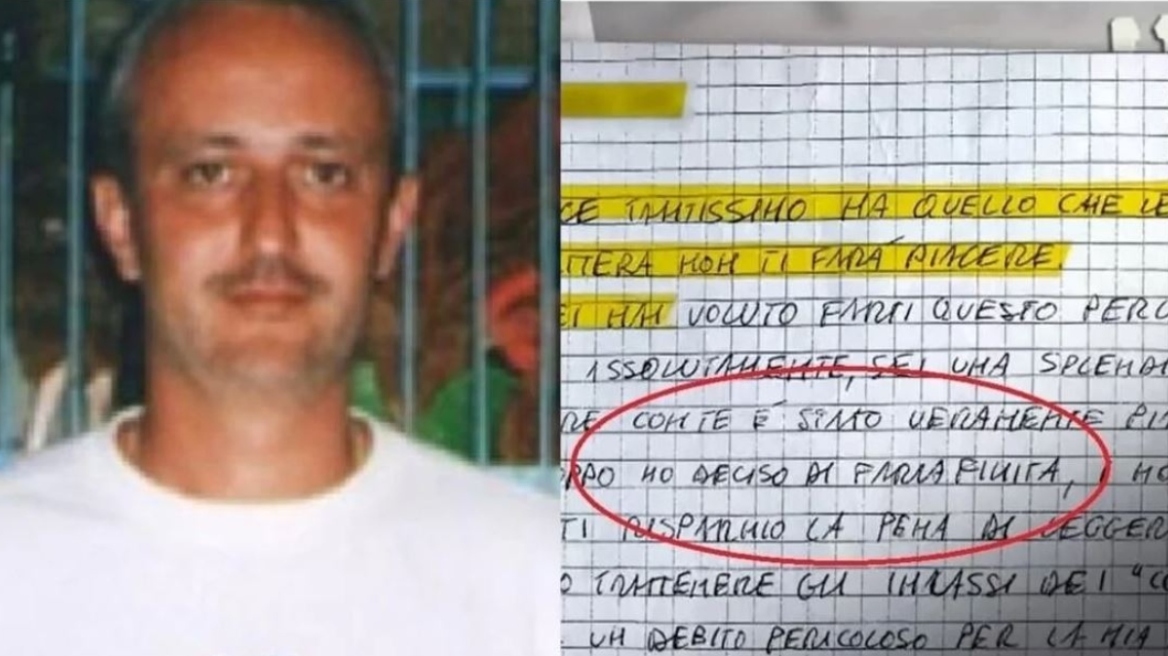 CE TANTISSIMO MA QUELLO CHE LE
TTERA NON TI FARÀ PIACERE
EI MAI VOLUTO FARTI QUESTO PERC
ASSOLUTAMENTE, SEI UNA SPLENDI
RE CON TE È STATO VERAMENTE
HO DECISO DI FARLA FINITA,
TI RISPARMIO LA PENA DI LEGGER
O TRATTENERE GLI INCASSI DEI "
UN DEBITO PERICOLOSO PER LA MIA